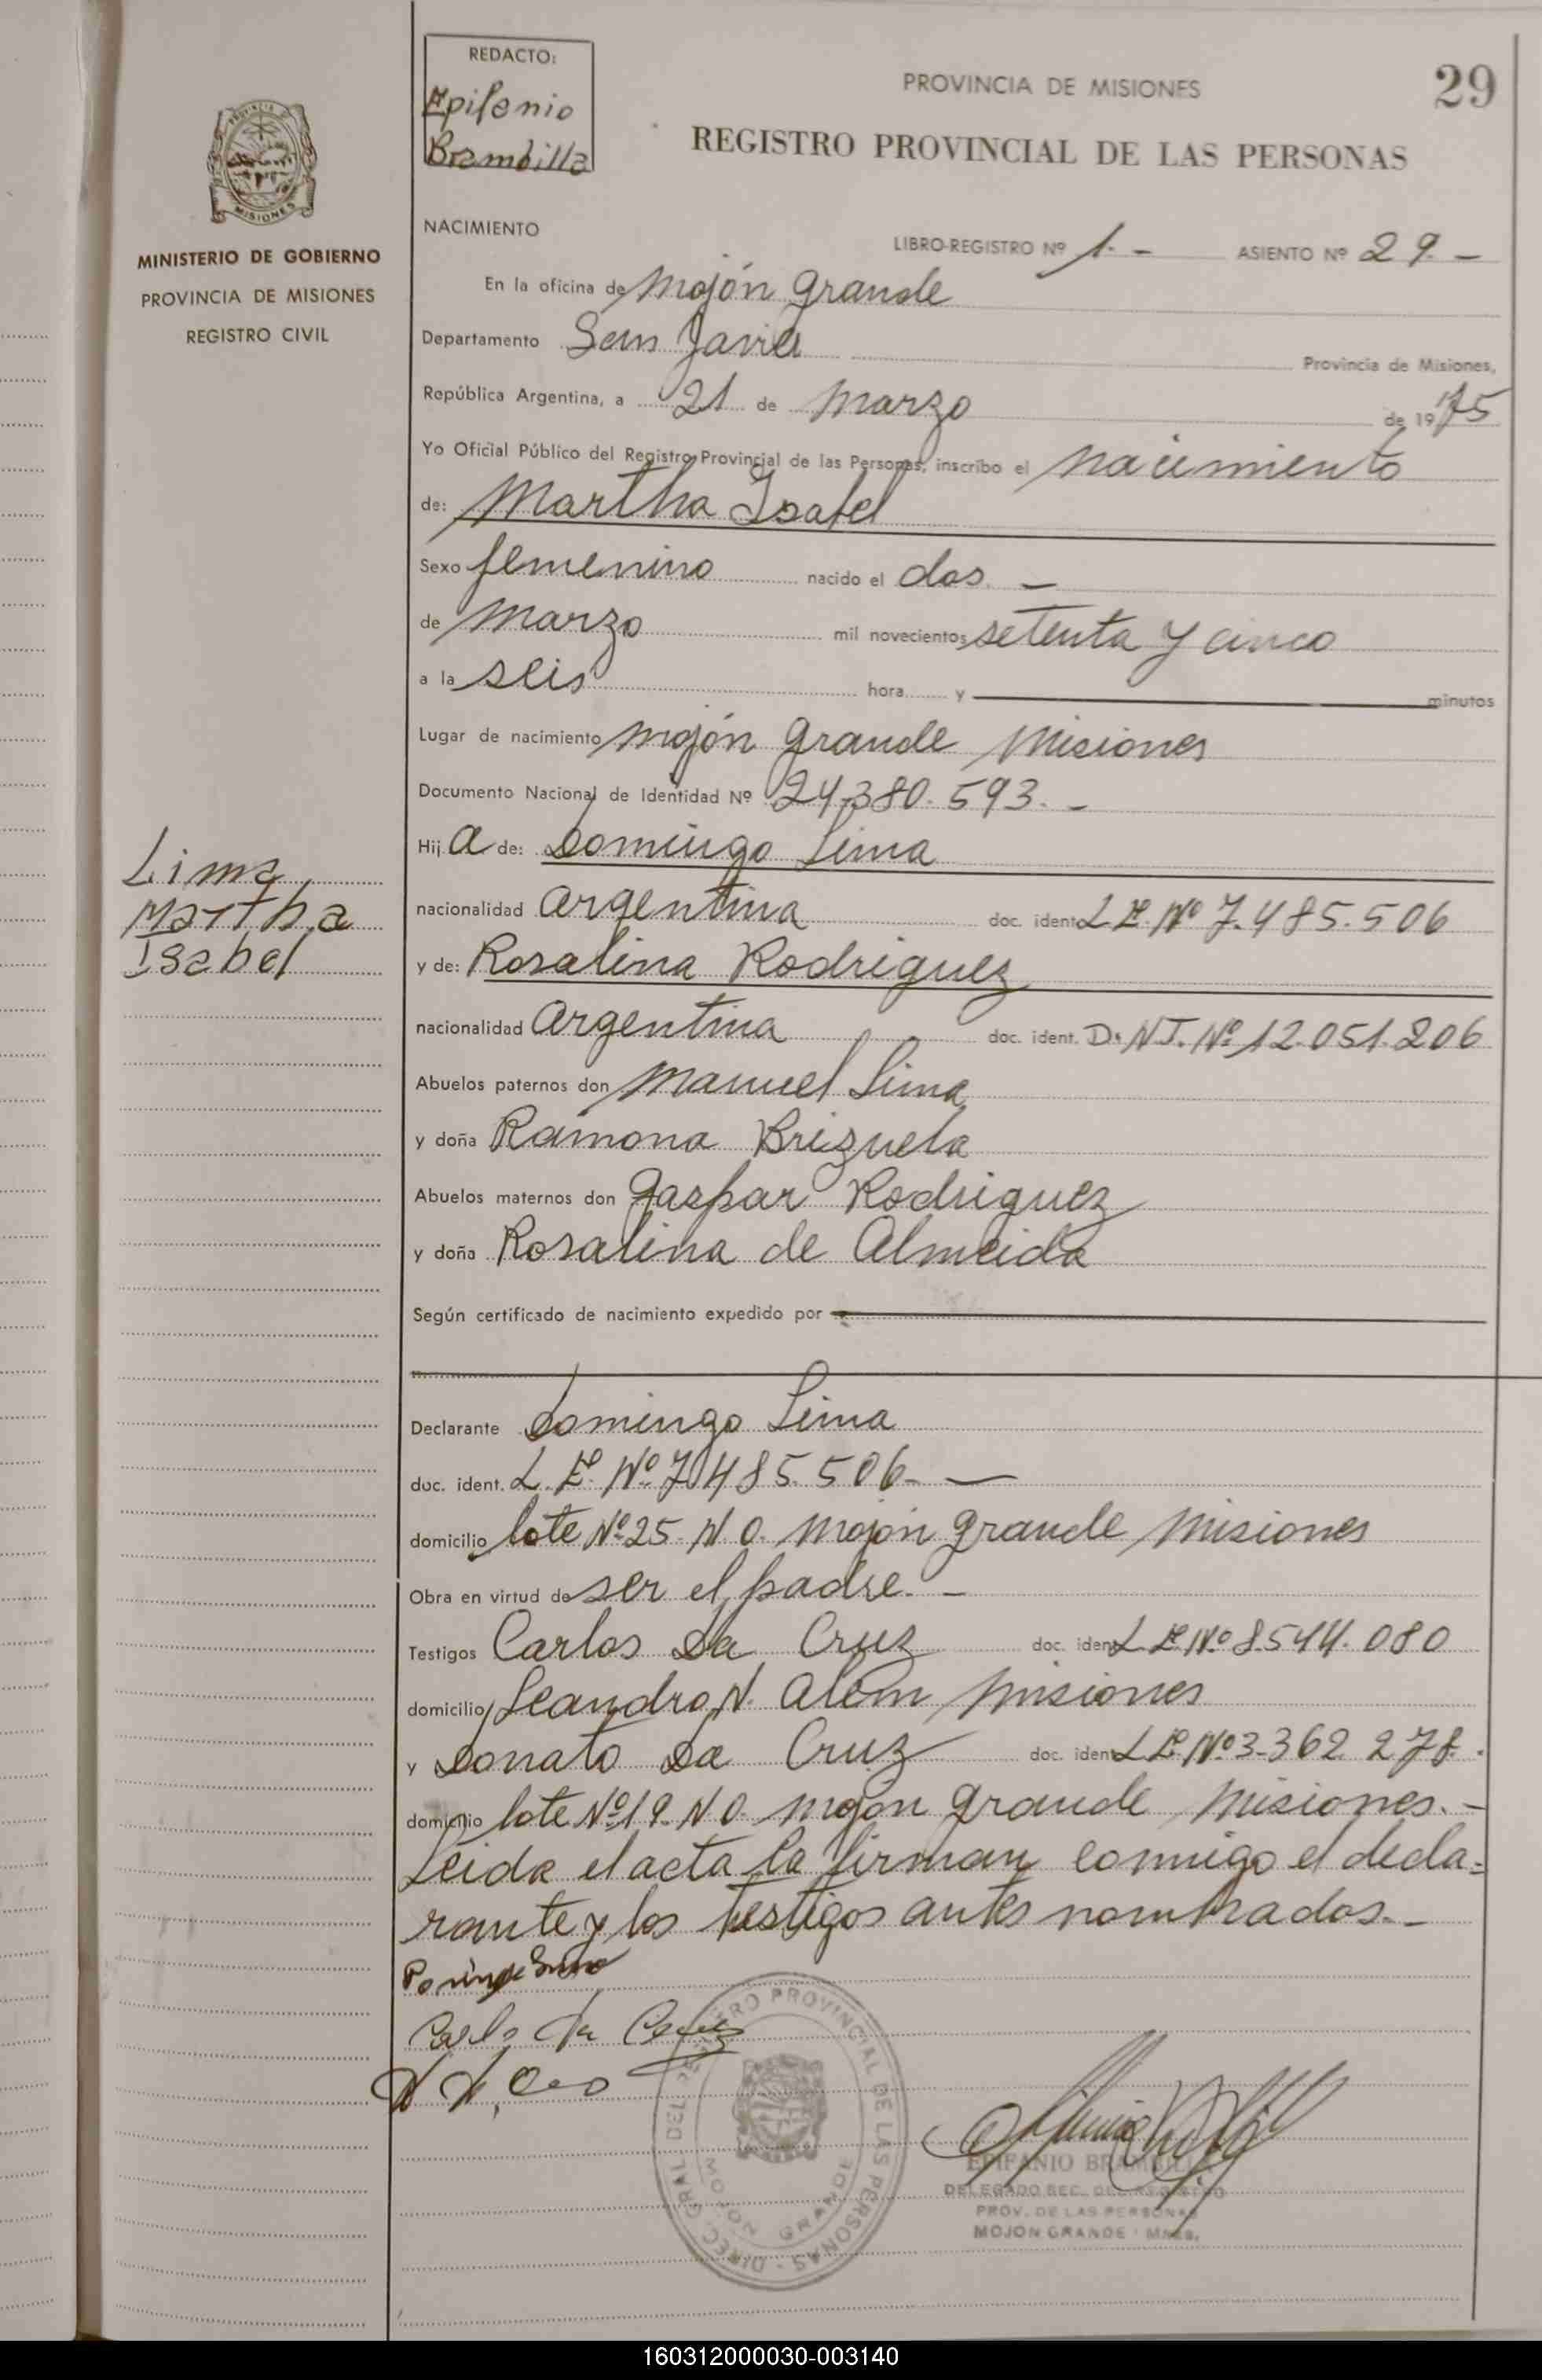 REDACTO:
Epifanio
Brambilla
PROVINCIA DE MISIONES
29
REGISTRO PROVINCIAL DE LAS PERSONAS
MISIONES
MINISTERIO DE GOBIERNO
PROVINCIA DE MISIONES
REGISTRO CIVIL
NACIMIENTO
LIBRO-REGISTRO Nº 1.- ASIENTO Nº 29.-
En la oficina de Mojón Grande
Departamento San Javier Provincia de Misiones,
República Argentina, a 21 de Marzo de 1975
Yo Oficial Público del Registro Provincial de las Personas, inscribo el nacimiento
de: Martha Isabel
Sexo femenino nacido el dos.-
de Marzo mil novecientos setenta y cinco
a la seis hora y minutos
Lugar de nacimiento Mojón Grande Misiones
Documento Nacional de Identidad Nº 24.380.593.-
Hij a de: Domingo Lima
nacionalidad Argentina doc. ident. L.E. Nº 7.485.506
y de: Rosalina Rodriguez
nacionalidad Argentina doc. ident. D.N.I. Nº 12.051.206
Abuelos paternos don Manuel Lima
y doña Ramona Brizuela
Abuelos maternos don Gaspar Rodriguez
y doña Rosalina de Almeida
Según certificado de nacimiento expedido por
Lima
Martha
Isabel
Declarante Domingo Lima
doc. ident. L.E. Nº 7.485.506.-
domicilio lote Nº 25. N.O. Mojón Grande Misiones
Obra en virtud de ser el padre.-
Testigos Carlos Da Cruz doc. ident. L.E. Nº 8.544.080
domicilio Leandro N. Alem Misiones
y Donato Da Cruz doc. ident. L.E. Nº 3.362.278.
domicilio lote Nº 19. N.O. Mojón Grande Misiones.-
Leida el acta la firman conmigo el decla=
rante y los testigos antes nombrados.-
Carlo da Cruz
DIREC. GRAL. DEL REGISTRO PROVINCIAL DE LAS PERSONAS
MOJON GRANDE
EPIFANIO BRAMBILLA
DELEGADO SEC. DEL REGISTRO
PROV. DE LAS PERSONAS
MOJON GRANDE - MNES.
160312000030-003140